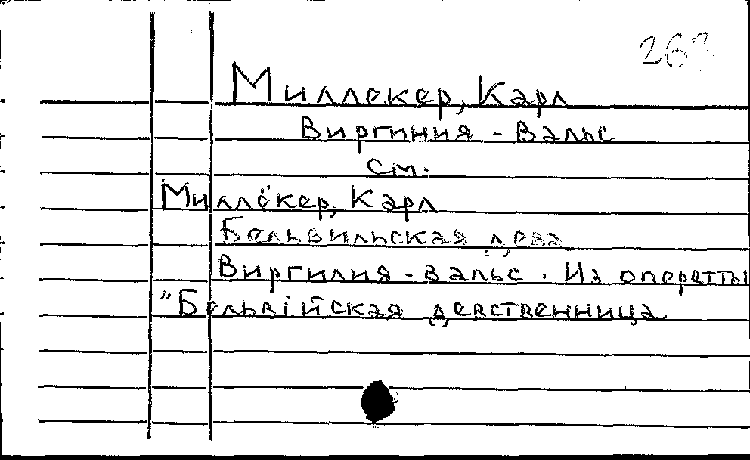 263
Миллокер, Карл
Виргиния - Вальс
см.
Миллёкер, Карл
Бельвильская дева
Виргилия - вальс. Из оперетты
"Бельвiйская девственница